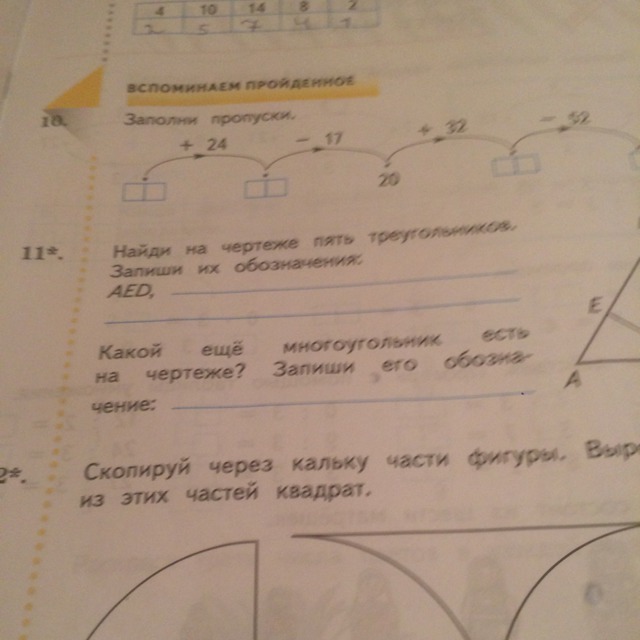 4 10 14 8 2
2 5 7 4 1
ВСПОМИНАЕМ ПРОЙДЕННОЕ
10. Заполни пропуски.
+ 24 − 17 + 32 − 52
20
11*. Найди на чертеже пять треугольников.
Запиши их обозначения:
AED,
Какой ещё многоугольник есть
на чертеже? Запиши его обозна-
чение:
E
A
2*. Скопируй через кальку части фигуры.
из этих частей квадрат.